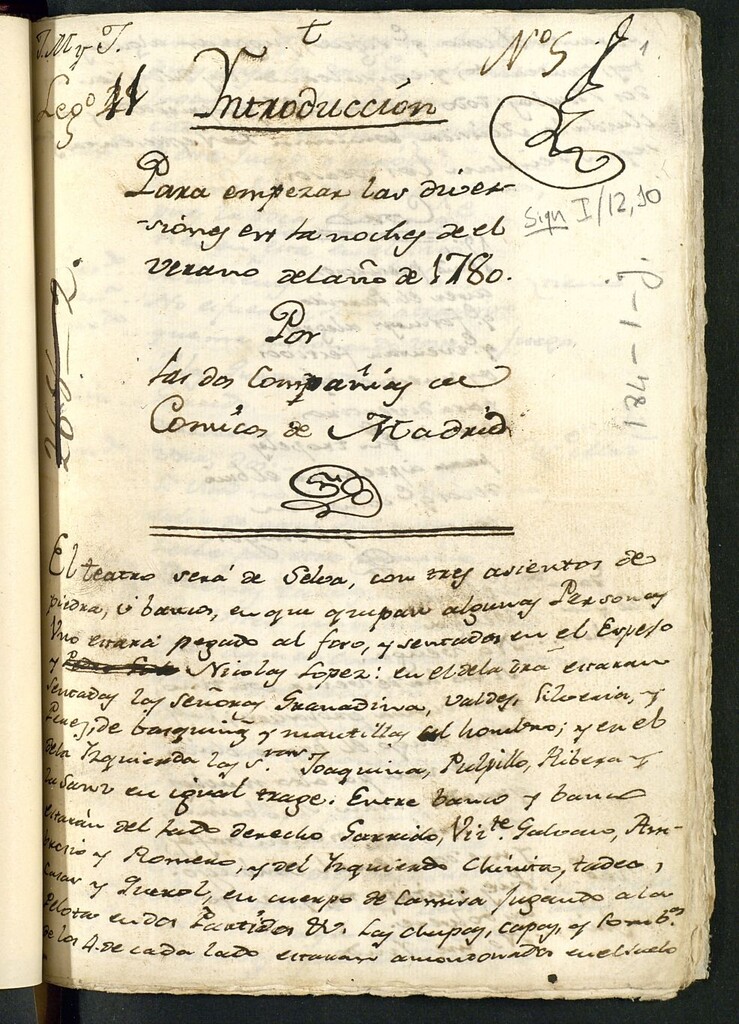 J. M. y J.
t
Nº 5
1
Legº 11
5
Introducción
Sign I/12, 10
Para empezar las diver-
siones en la noches de el
verano del año de 1780.
Por
las dos Compañias de
Comicos de Madrid
268-2.
184-1-9
El teatro será de Selva, con tres asientos de
piedra, ó banco, en que quepan algunas Personas
Uno estará pegado al foro, y sentados en el Espejo
y Nicolas Lopez: en el de la dra estaran
sentadas las señoras Granadina, Valdes, Silveria, y
Perez, de basquiñas y mantillas al hombro; y en el
de la Yzquierda las s.ras Joaquina, Pulpillo, Ribera y
la Sanz en igual trage. Entre banco y banco
estarán del lado derecho Garrido, Vizte. Galvan, Am-
brosio y Romero, y del Yzquierdo Chinita, tadeo,
Cusar y Querol, en cuerpo de Camisa Jugando a la
Pelota en dos Partidos &. Las chupas, capas, y Somb.os
de los 4. de cada lado estaran amontonados en el suelo